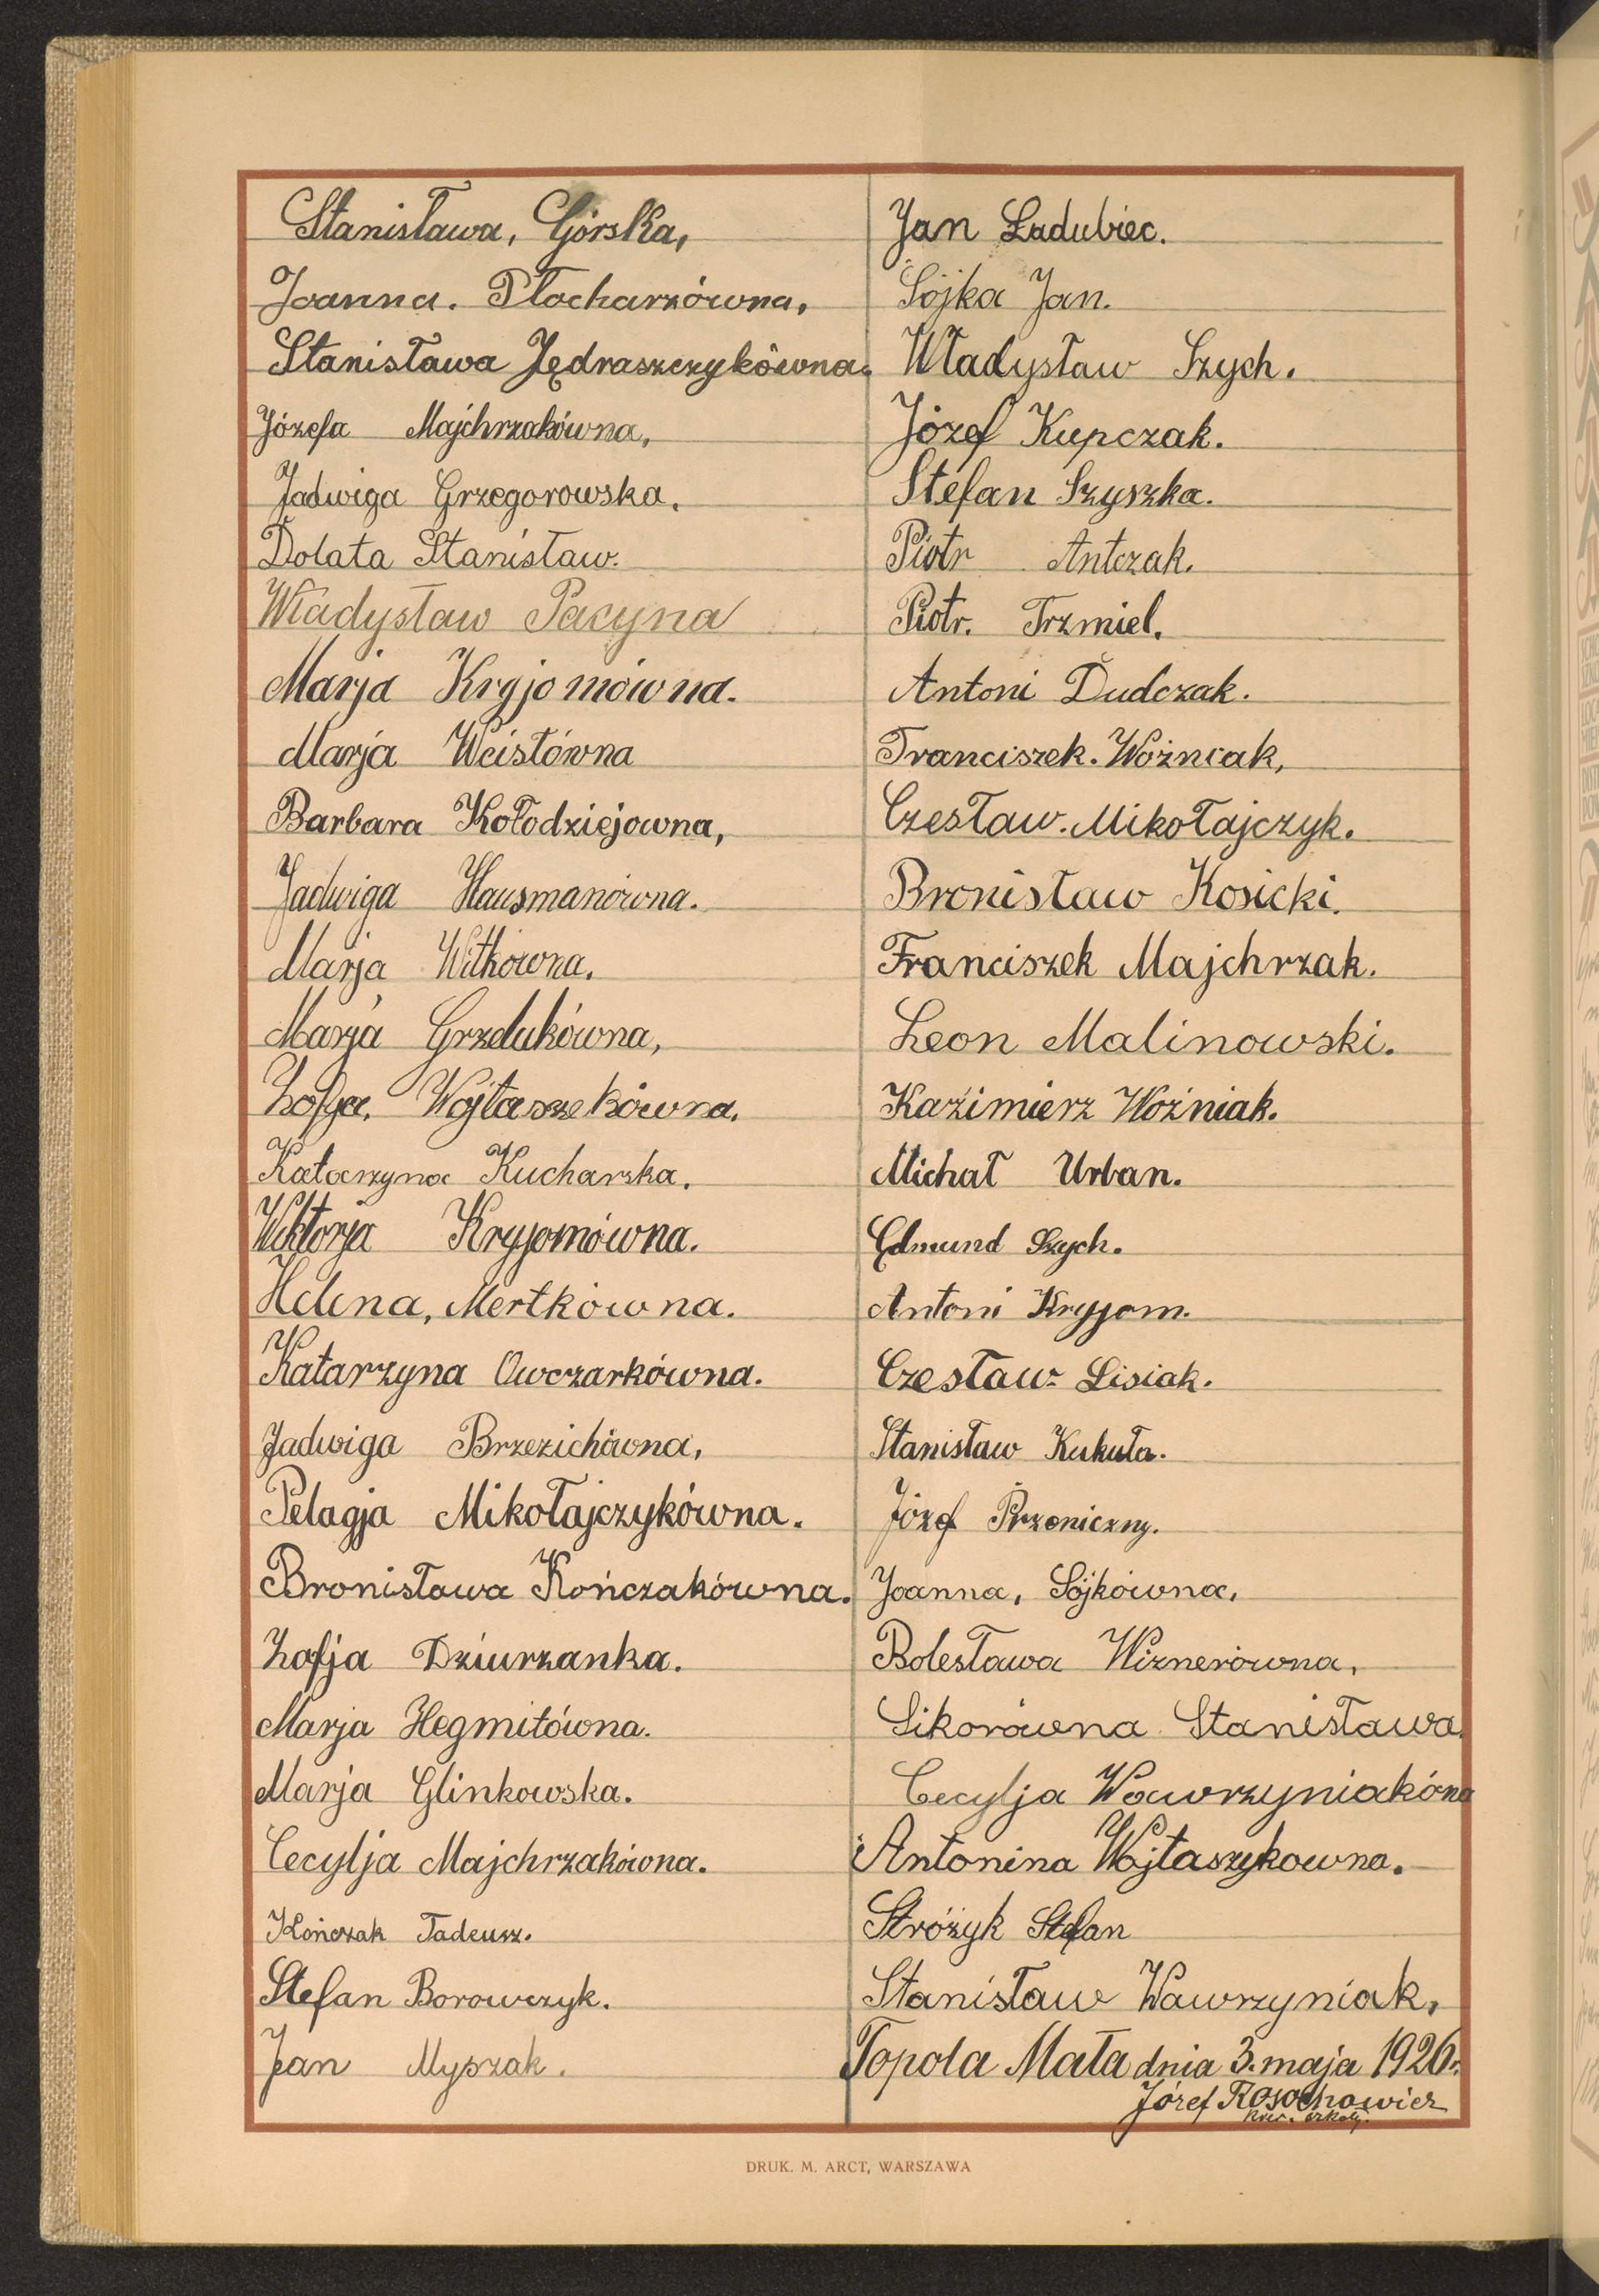 Stanisława, Górska,
Joanna. Płocharzówna,
Stanisława Jędraszczykówna.
Józefa Majchrzakówna,
Jadwiga Grzegorowska.
Dolata Stanisław.
Władysław Pacyna
Marja Kryjomówna.
Marja Weistówna
Barbara Kołodziejowna,
Jadwiga Hausmanówna.
Marja Witkówna.
Marja Grzelukówna,
Zofja. Wojtaszekówna.
Katarzyna Kucharska.
Wiktorja Kryjomówna.
Helena, Mertkówna.
Katarzyna Owczarkówna.
Jadwiga Brzezichówna,
Pelagja Mikołajczykówna.
Bronisława Kończakówna.
Zofja Dziurzanka.
Marja Hegmitówna.
Marja Glinkowska.
Cecylja Majchrzakówna.
Kończak Tadeusz.
Stefan Borowczyk.
Jan Myszak.
Jan Ładubiec.
Sójka Jan.
Władysław Szych.
Józef Kupczak.
Stefan Szyszka.
Piotr Antczak.
Piotr. Trzmiel.
Antoni Dudczak.
Franciszek. Woźniak,
Czesław. Mikołajczyk.
Bronisław Kosicki.
Franciszek Majchrzak.
Leon Malinowski.
Kazimierz Woźniak.
Michał Urban.
Edmund Szych.
Antoni Kryjom.
Czesław Lisiak.
Stanisław Kukuła.
Józef Przeniczny.
Joanna, Sójkówna,
Bolesława Wiznerówna,
Sikorówna Stanisława.
Cecylja Wawrzyniakóna
Antonina Wojtaszykowna.
Stróżyk Stefan
Stanisław Wawrzyniak,
Topola Mała dnia 3. maja 1926.
Józef Rosochowicz
kier. szkoły.
DRUK. M. ARCT, WARSZAWA